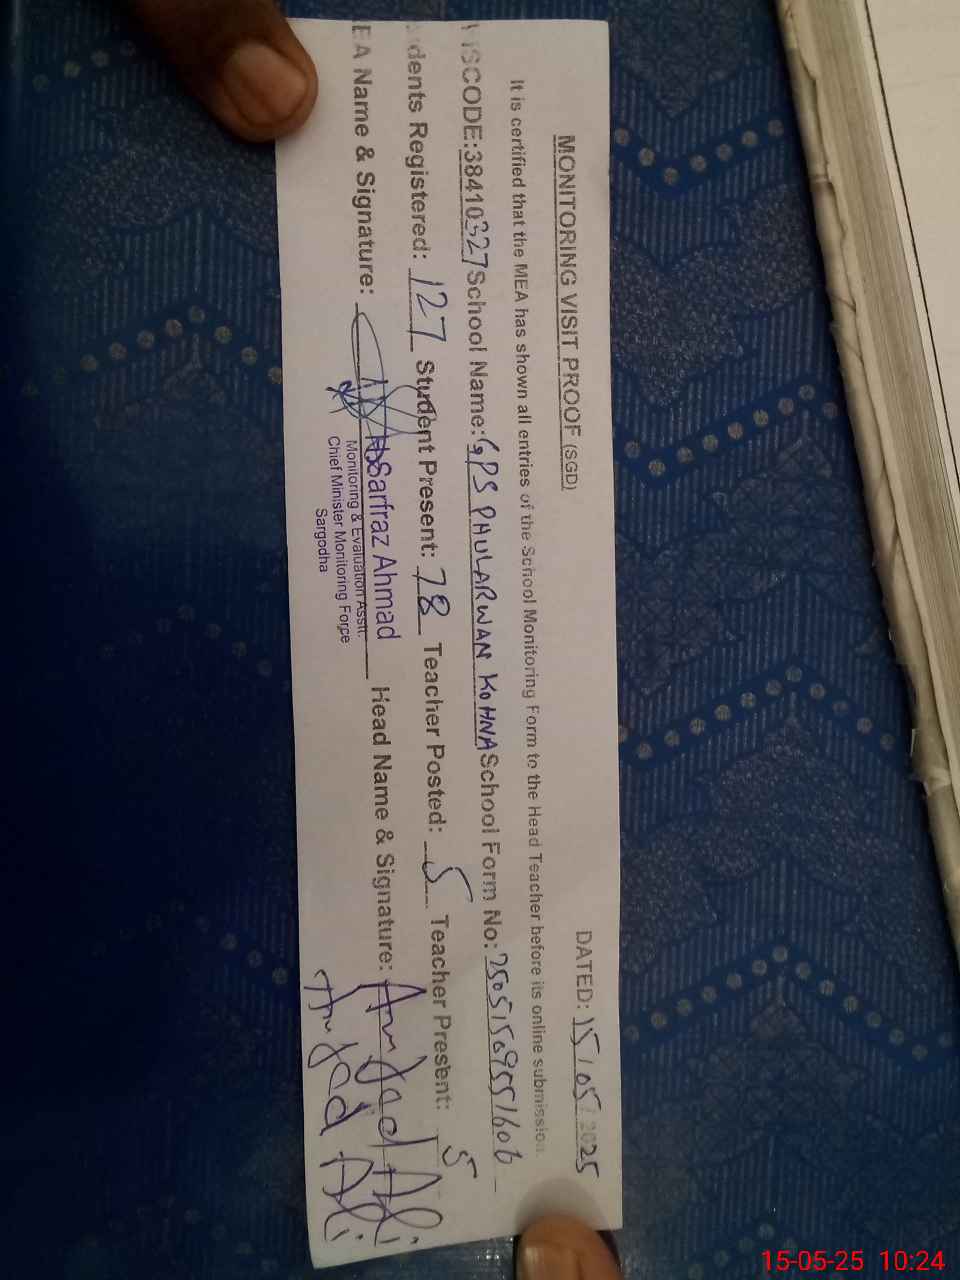 MONITORING VISIT PROOF (SGD) DATED: 15/05/2025
It is certified that the MEA has shown all entries of the School Monitoring Form to the Head Teacher before its online submission.
ISCODE:38410327 School Name: GPS PHULARWAN KOHNA School Form No: 25051509551606
dents Registered: 127 Student Present: 78 Teacher Posted: 5 Teacher Present: 5
EA Name & Signature: Sarfraz Ahmad Head Name & Signature: Amjad Ali
Monitoring & Evaluation Asstt. Amjad Ali
Chief Minister Monitoring Force
Sargodha
15-05-25 10:24